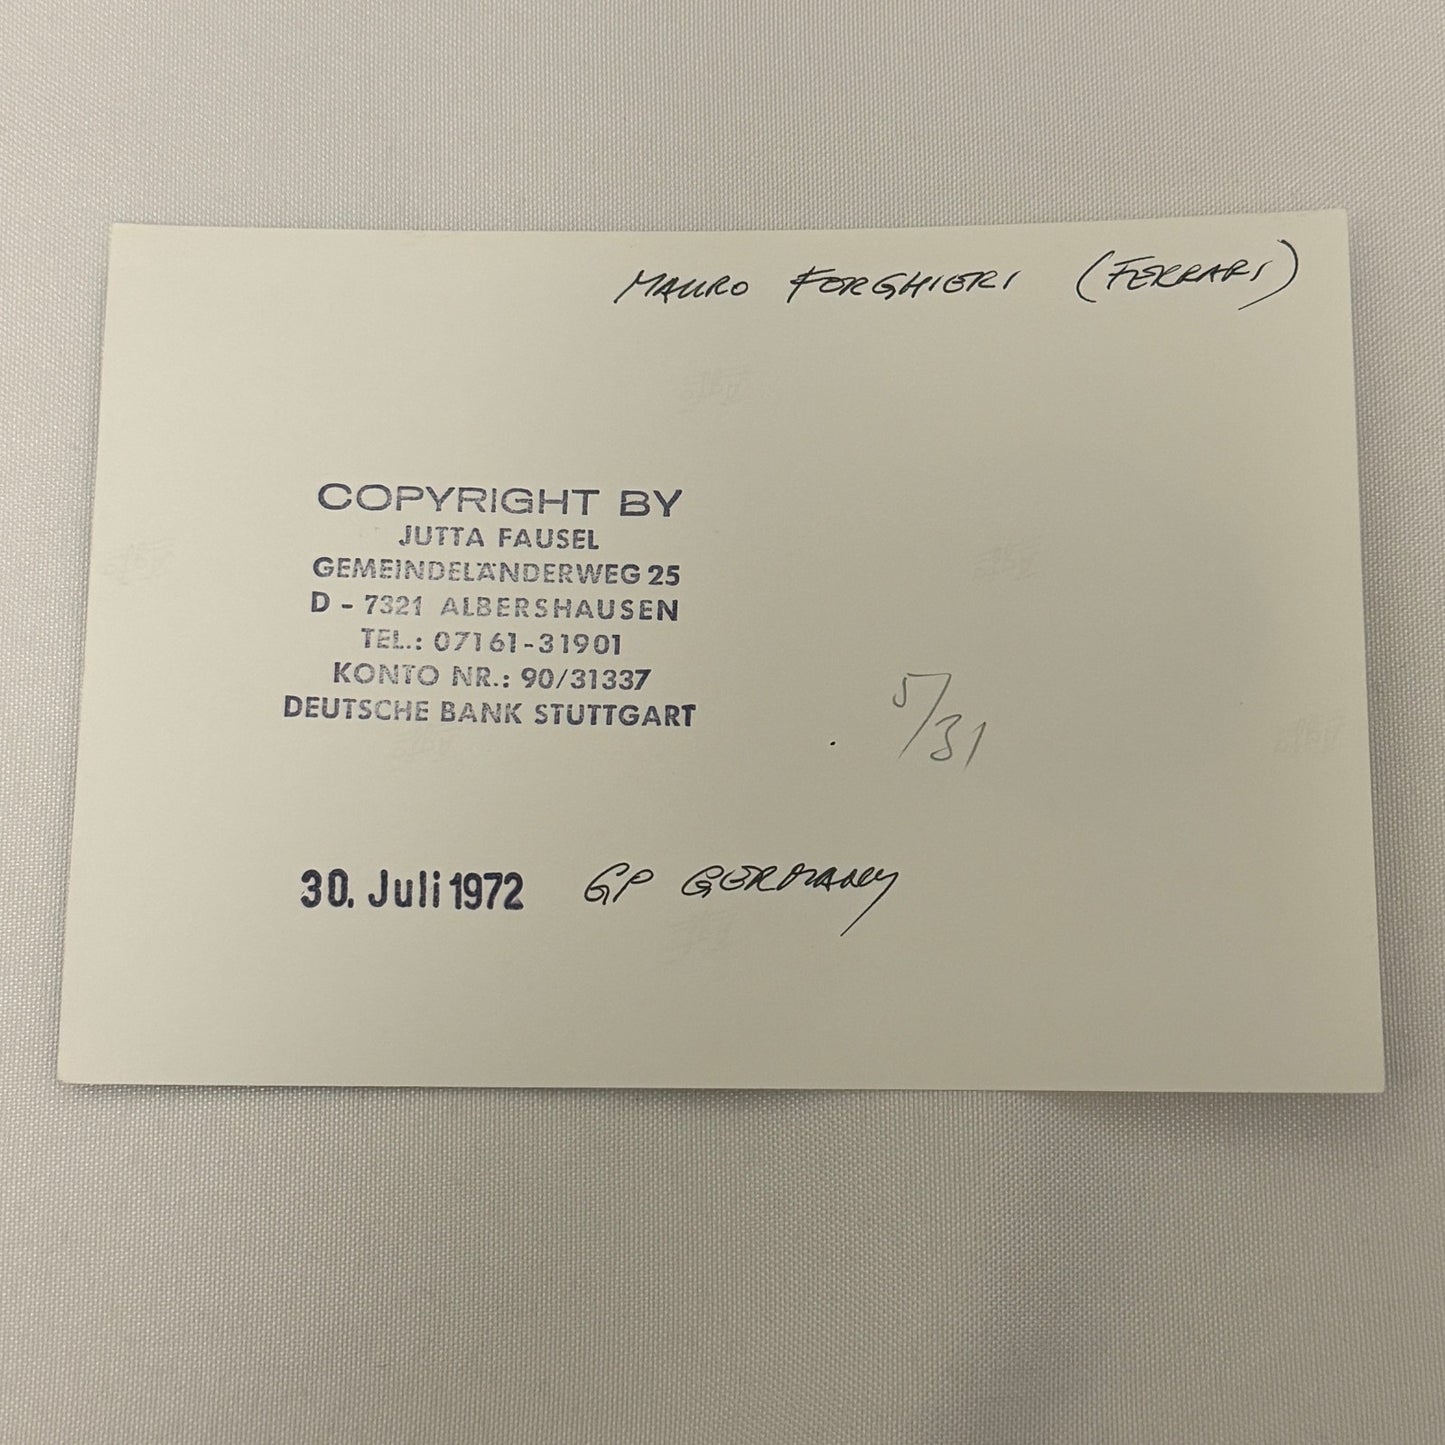 MAURO FORGHIERI (FERRARI)
COPYRIGHT BY
JUTTA FAUSEL
GEMEINDELÄNDERWEG 25
D - 7321 ALBERSHAUSEN
TEL.: 07161-31901
KONTO NR.: 90/31337
DEUTSCHE BANK STUTTGART
5/31
30. Juli 1972 GP GERMANY